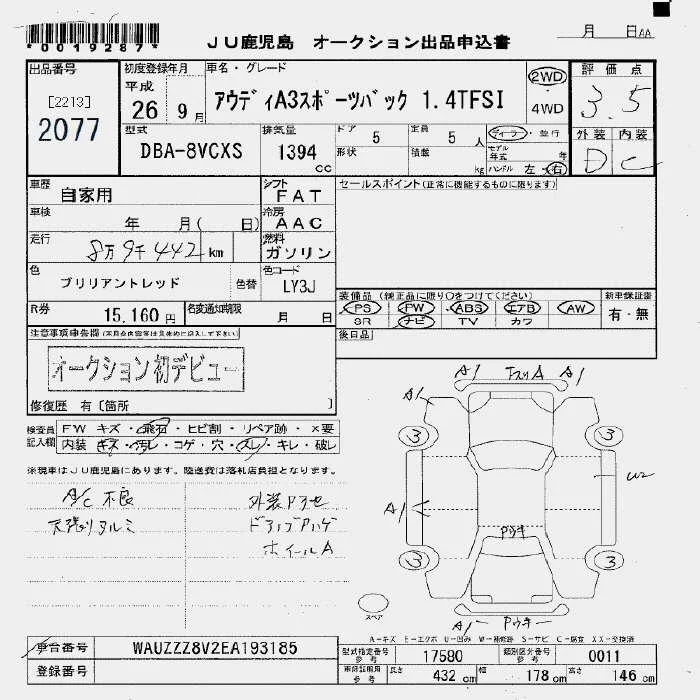 *00192872*
JU鹿児島 オークション出品申込書
月 日 AA
出品番号
[2213]
2077
初度登録年月
平成
26 9月
車名・グレード
アウディA3スポーツバック 1.4TFSI
2WD
・
4WD
評価点
3.5
型式
DBA-8VCXS
排気量
1394
cc
ドア 5
形状
定員 5 人
積載 kg
ディーラ・並行
モデル年式 年
ハンドル 左・右
外装 内装
D C
車歴 自家用
シフト FAT
車検 年 月( 日)
冷房 AAC
走行 8万9千442 km
燃料 ガソリン
色 ブリリアントレッド 色替
色コード LY3J
R券 15,160 円
名変通知期限 月 日
セールスポイント(正常に機能するものに限ります)
装備品 (純正品に限り○をつけてください) 新車保証書
PS PW ABS エアB AW
SR ナビ TV カワ
有・無
後日品
注意事項申告欄
オークション初デビュー
修復歴 有〔箇所 〕
検査員記入欄
FW キズ・飛石・ヒビ割・リペア跡・×要
内装 キズ・汚レ・コゲ・穴・スレ・キレ・破レ
※現車はJU鹿児島にあります。陸送費は落札店負担となります。
A/C 不良
天張りタルミ
外装クスセ
ドアノブハゲ
ホイールA
A1 A1
A1
3 3
A1 W2
Pウキ
3 3
A1 Pウキ
スペア
A−キズ E−エクボ U−凹み W−補修跡 S−サビ C−腐食 XX−交換済
車台番号 WAUZZZ8V2EA193185
登録番号
型式指定番号 参考 17580
類別区分番号 参考 0011
車検証記載 参考 長さ 432 cm 幅 178 cm 高さ 146 cm